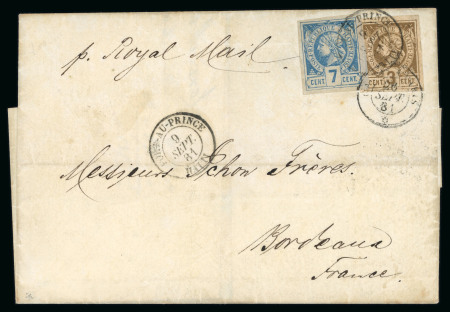 p. Royal Mail
7
CENT. CENT.
3
CENT.
SEPT.
81
PORT-AU-PRINCE
9
SEPT.
81
HAITI
Messieurs Schön Frères.
Bordeaux
France.